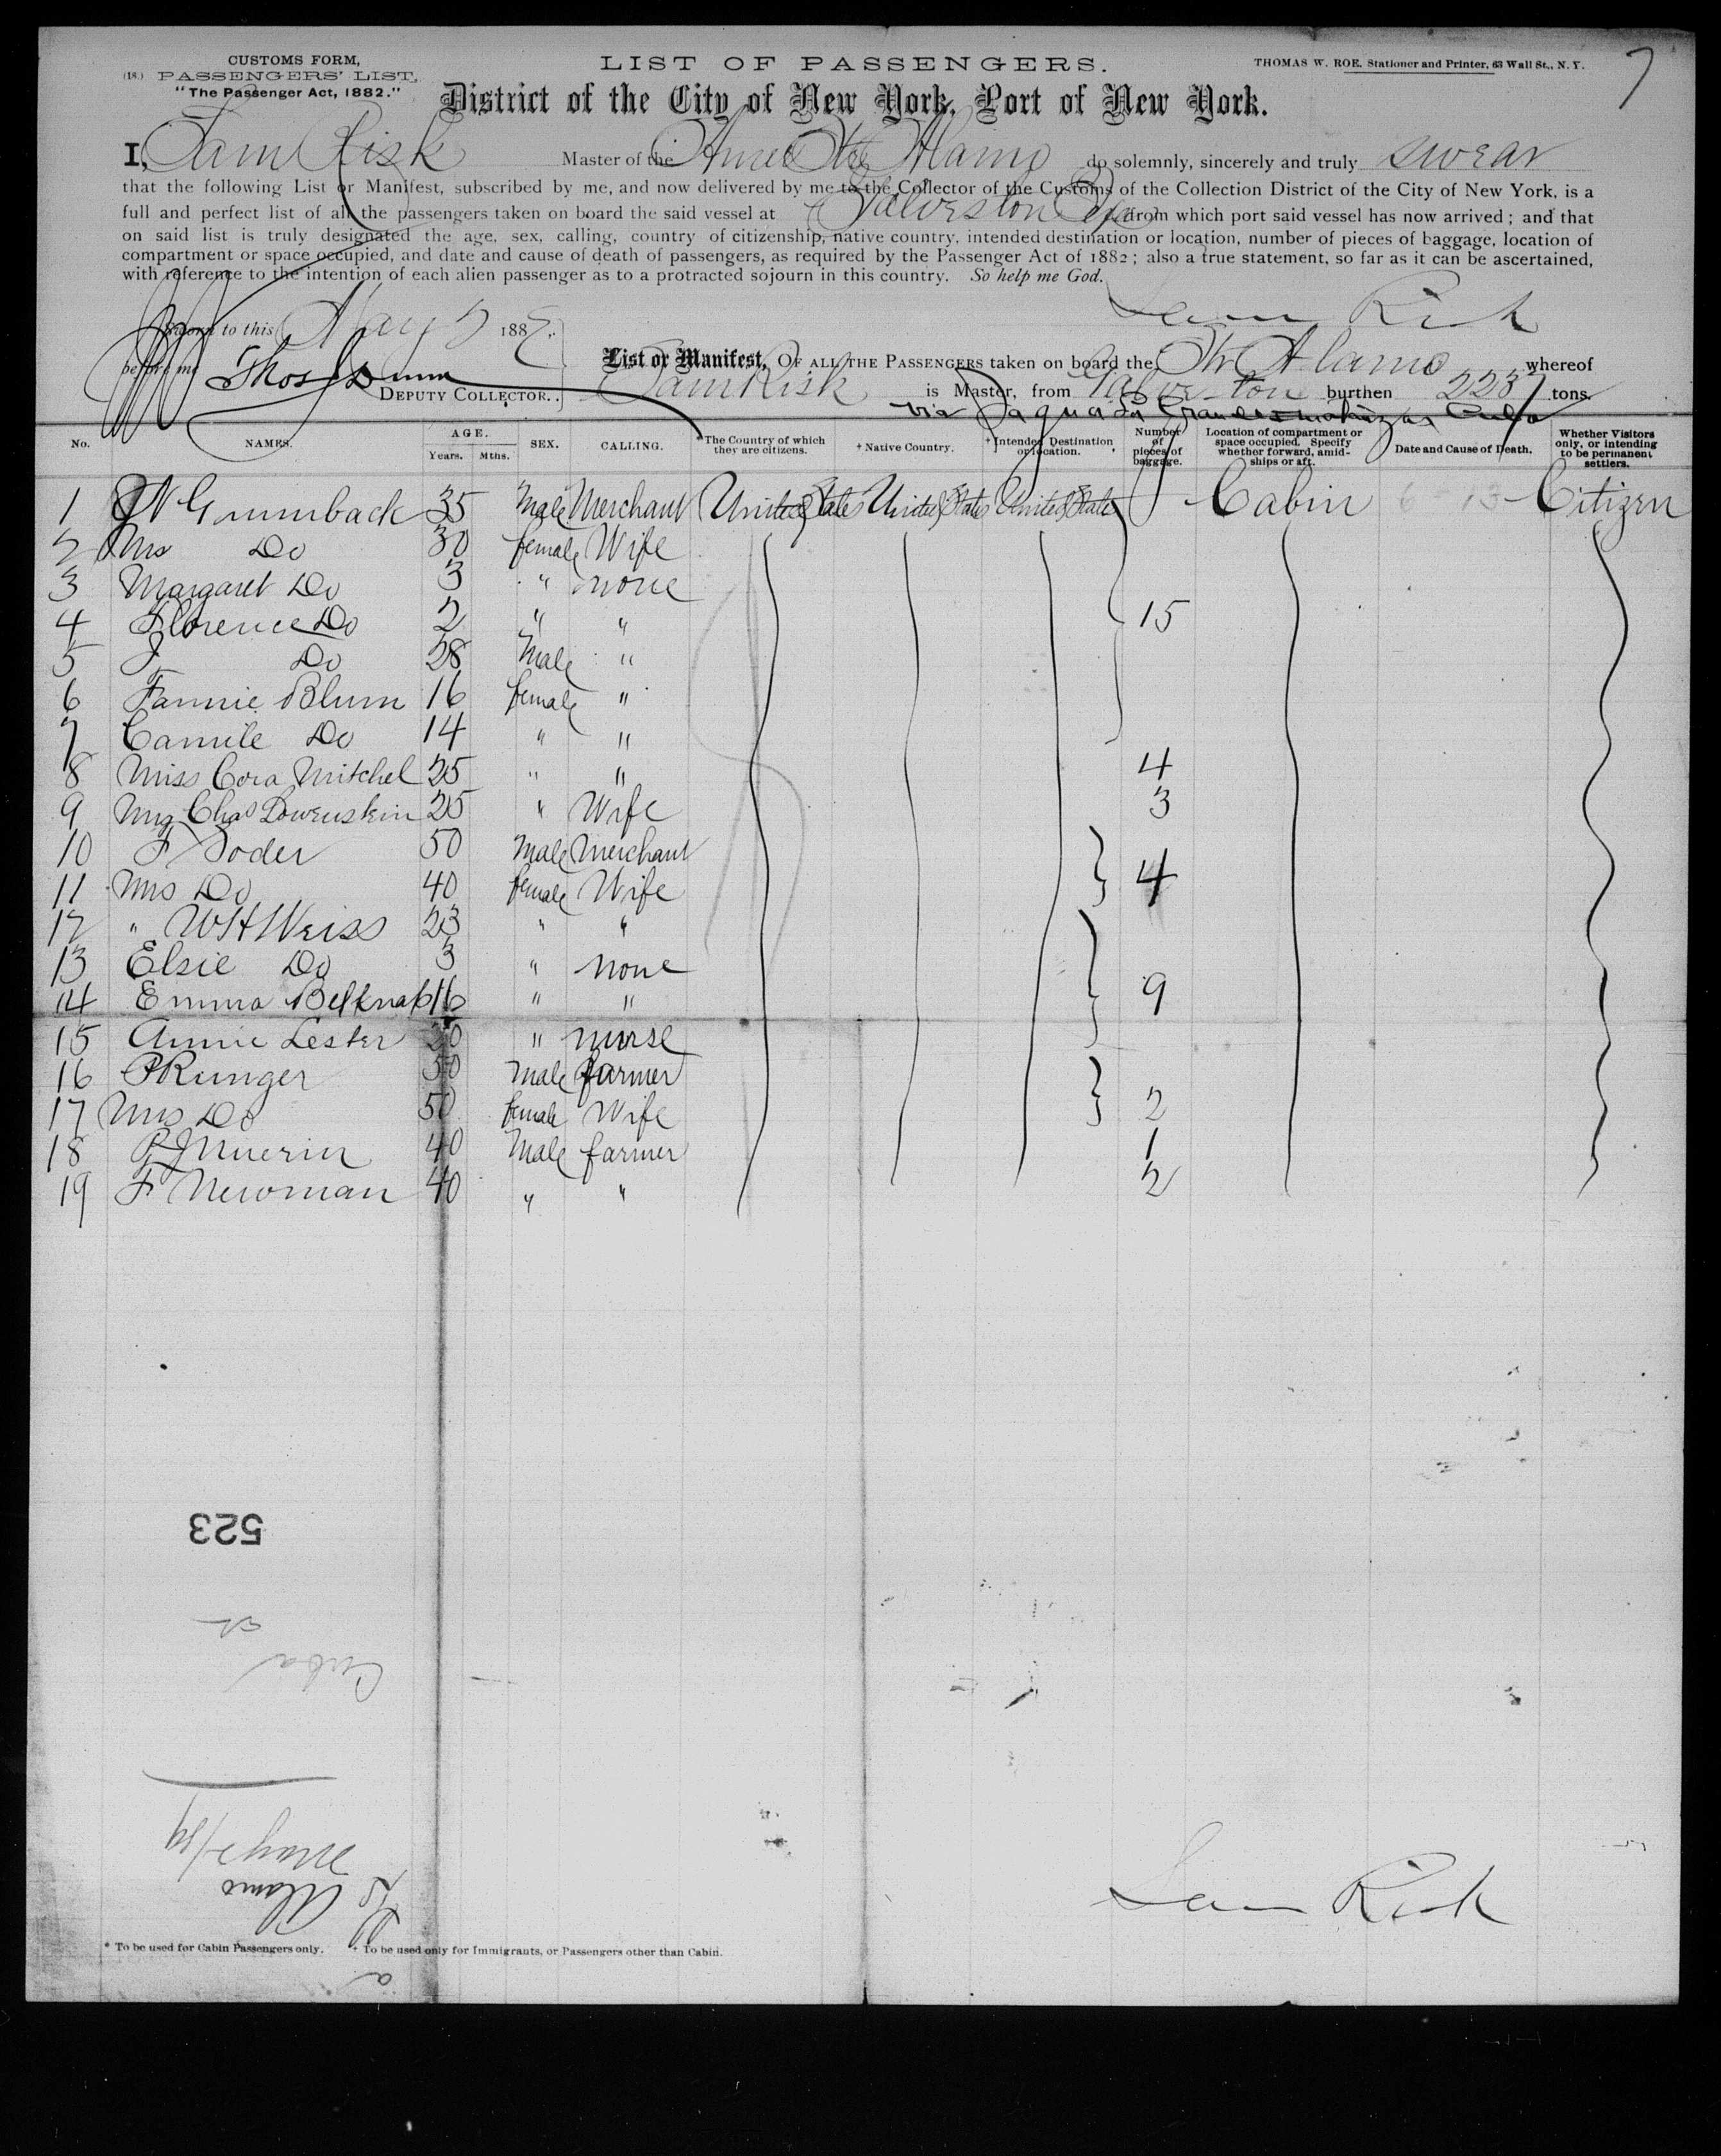 CUSTOMS FORM,
(18.) PASSENGERS' LIST,
"The Passenger Act, 1882."
LIST OF PASSENGERS.
THOMAS W. ROE, Stationer and Printer, 63 Wall St., N. Y.
7
District of the City of New York, Port of New York.
I, Sam Risk Master of the Alamo do solemnly, sincerely and truly swear
that the following List or Manifest, subscribed by me, and now delivered by me to the Collector of the Customs of the Collection District of the City of New York, is a
full and perfect list of all the passengers taken on board the said vessel at Galveston from which port said vessel has now arrived; and that
on said list is truly designated the age, sex, calling, country of citizenship, native country, intended destination or location, number of pieces of baggage, location of
compartment or space occupied, and date and cause of death of passengers, as required by the Passenger Act of 1882; also a true statement, so far as it can be ascertained,
with reference to the intention of each alien passenger as to a protracted sojourn in this country. So help me God.
Sam Risk
Sworn to this May 188
before me Thos Dunn
DEPUTY COLLECTOR.
List or Manifest, OF ALL THE PASSENGERS taken on board the Str Alamo whereof
Sam Risk is Master, from Galveston burthen 2237 tons.
via Sagua La Grande Cuba
No. NAMES. AGE. Years. Mths. SEX. CALLING. *The Country of which they are citizens. † Native Country. † Intended Destination or location. Number of pieces of baggage. Location of compartment or space occupied. Specify whether forward, amid-ships or aft. Date and Cause of Death. Whether Visitors only, or intending to be permanent settlers.
1 Grumback 35 Male Merchant United States United States United States Cabin Citizen
2 Mrs Do 30 female Wife
3 Margaret Do 3 " none
4 Florence Do 2 " " 15
5 J Do 28 Male "
6 Fannie Blum 16 female "
7 Camile Do 14 " "
8 Miss Cora Mitchel 25 " " 4
9 Mrs Chas Lowenstein 25 " Wife 3
10 F 50 Male Merchant
11 Mrs Do 40 female Wife 4
12 " W H Weiss 23 " "
13 Elsie Do 3 " none
14 Emma Belknap 16 " " 9
15 Annie Lester 20 " nurse
16 P Runger 50 Male farmer
17 Mrs Do 50 female Wife 2
18 40 Male farmer 1
19 F Newman 40 " " 2
523
Cuba
May
Alamo
Sam Risk
* To be used for Cabin Passengers only. † To be used only for Immigrants, or Passengers other than Cabin.